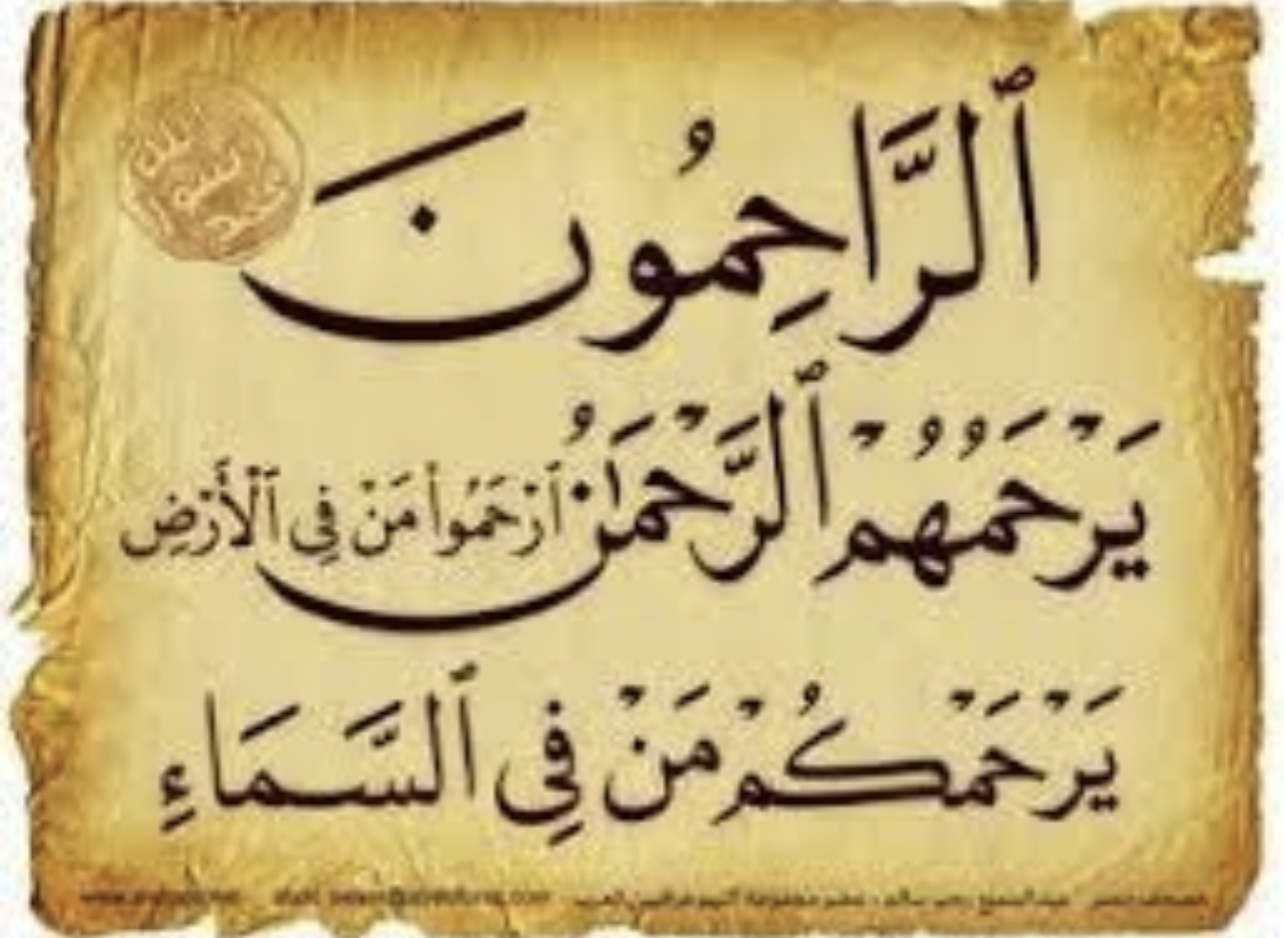 ٱلرَّاحِمُونَ
يَرْحَمُهُمُ ٱلرَّحْمَٰنُ ٱرْحَمُوا۟ مَنْ فِي ٱلْأَرْضِ
يَرْحَمْكُمْ مَنْ فِي ٱلسَّمَاءِ